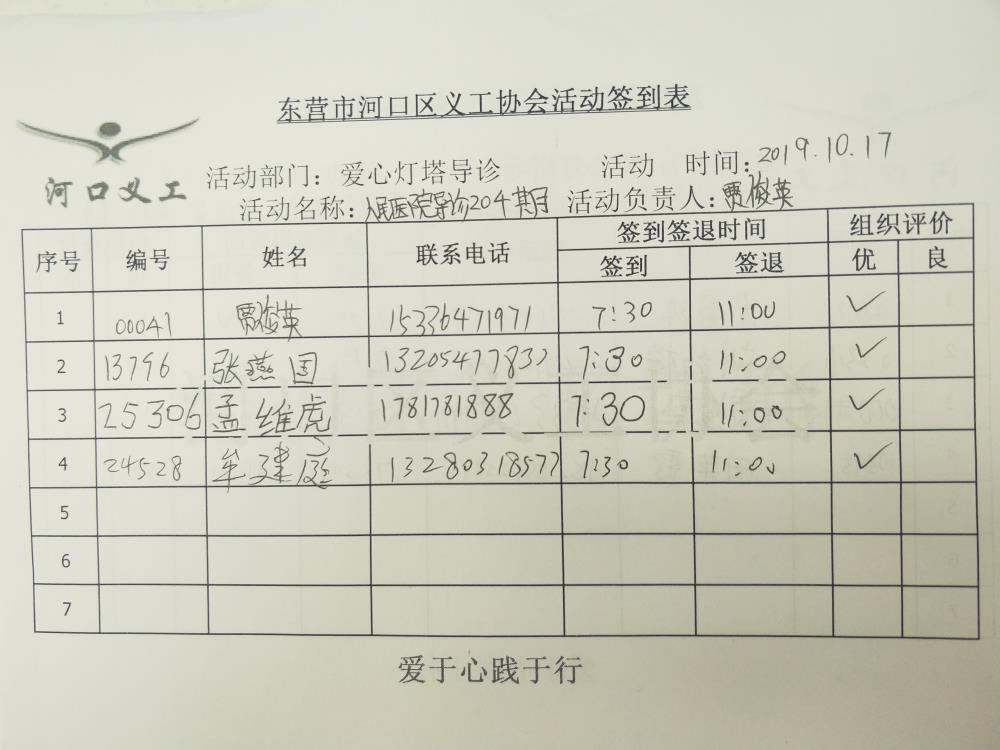 东营市河口区义工协会活动签到表
河口义工
活动部门：爱心灯塔导诊 活动 时间：2019.10.17
活动名称：人民医院导诊204期 活动负责人：贾俊英
序号 编号 姓名 联系电话 签到签退时间 组织评价
签到 签退 优 良
1 00041 贾俊英 15336471971 7:30 11:00 ✓
2 13796 张燕国 13205477837 7:30 11:00 ✓
3 25306 孟维虎 1781781888 7:30 11:00 ✓
4 24528 牟建庭 13280318577 7:30 11:00 ✓
5
6
7
爱于心践于行